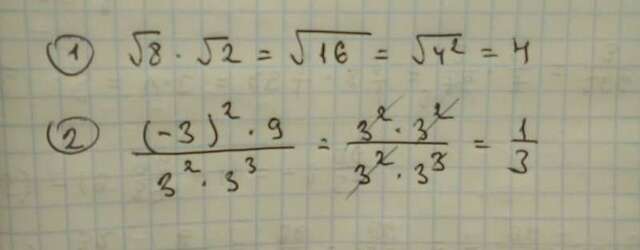 ① √8 · √2 = √16 = √4² = 4
② (-3)² · 9 / 3² · 3³ = 3² · 3² / 3² · 3³ = 1/3